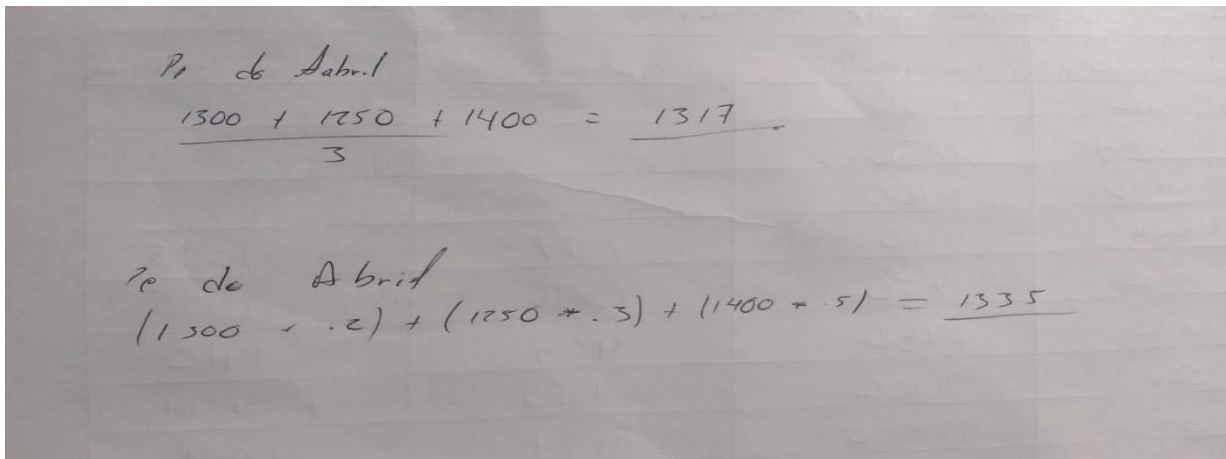 de Aabril
1300 + 1250 + 1400 = 1317
3
de Abril
(1300 * .2) + (1250 * .3) + (1400 * .5) = 1335